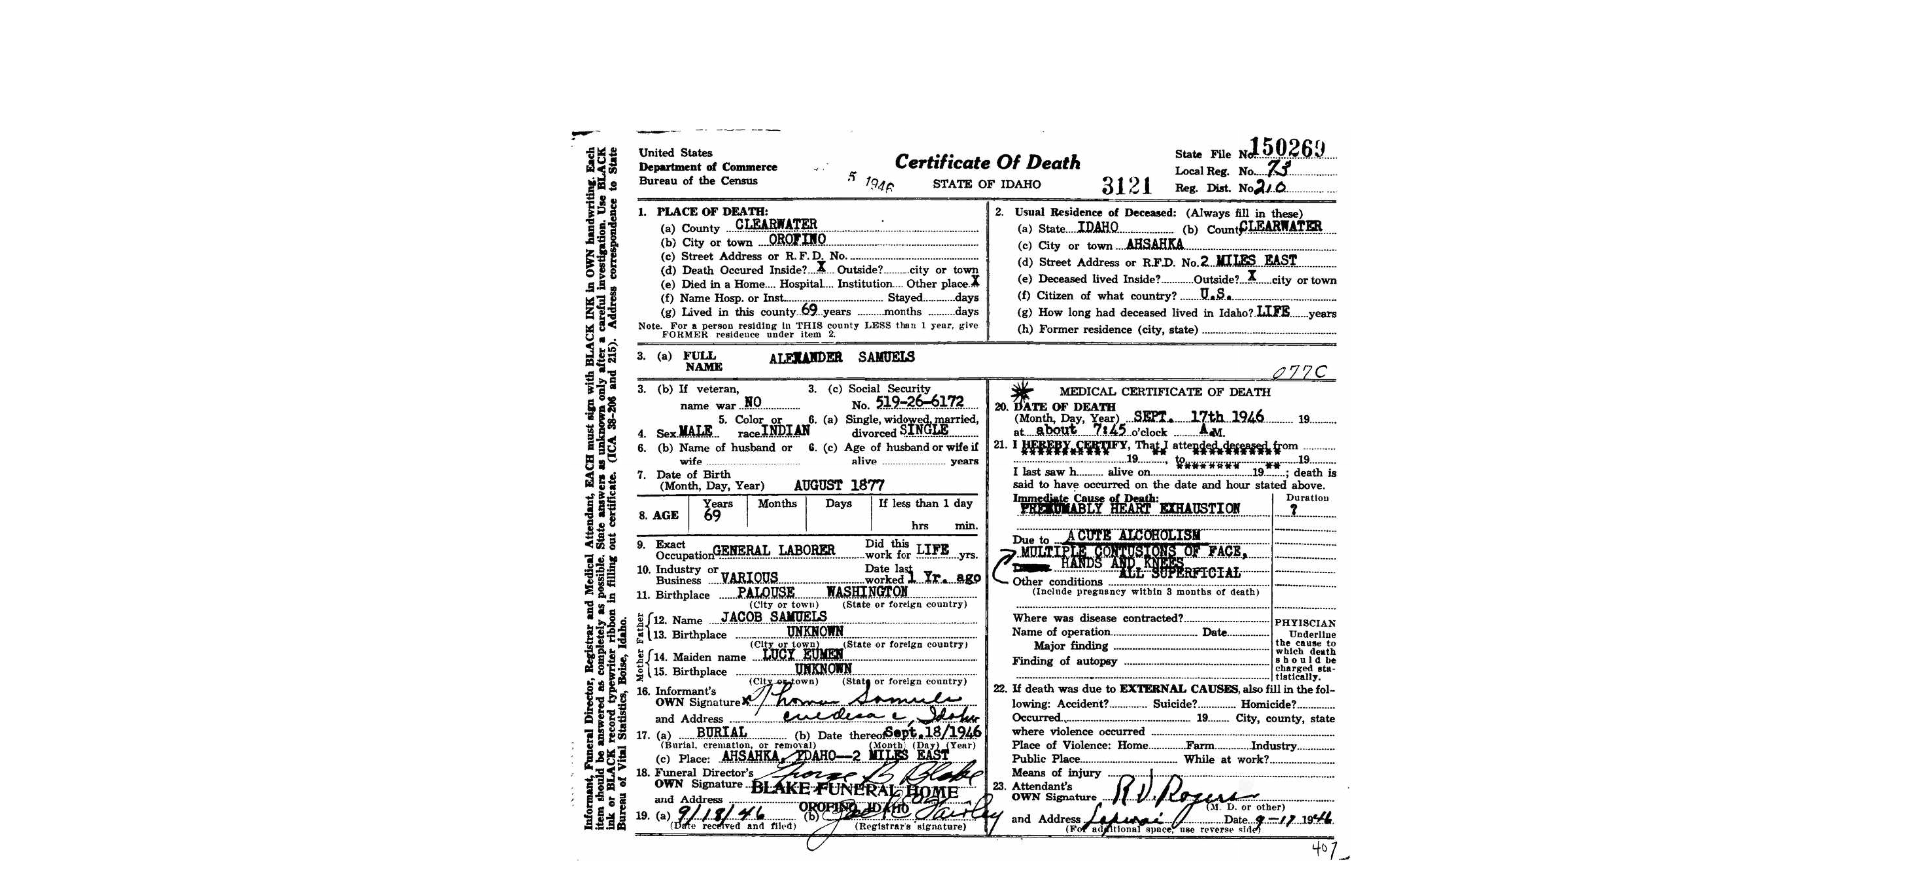 United States
Department of Commerce
Bureau of the Census
5 1946
Certificate Of Death
STATE OF IDAHO
3121
State File No. 150269
Local Reg. No. 73
Reg. Dist. No. 210
1. PLACE OF DEATH:
(a) County CLEARWATER
(b) City or town OROFINO
(c) Street Address or R. F. D. No.
(d) Death Occured Inside? X Outside? city or town
(e) Died in a Home Hospital Institution Other place X
(f) Name Hosp. or Inst. Stayed days
(g) Lived in this county 69 years months days
Note. For a person residing in THIS county LESS than 1 year, give
FORMER residence under item 2.
2. Usual Residence of Deceased: (Always fill in these)
(a) State IDAHO (b) County CLEARWATER
(c) City or town AHSAHKA
(d) Street Address or R.F.D. No. 2 MILES EAST
(e) Deceased lived Inside? Outside? X city or town
(f) Citizen of what country? U.S.
(g) How long had deceased lived in Idaho? LIFE years
(h) Former residence (city, state)
3. (a) FULL NAME ALEXANDER SAMUELS
077C
3. (b) If veteran, name war NO
3. (c) Social Security No. 519-26-6172
4. Sex MALE
5. Color or race INDIAN
6. (a) Single, widowed, married, divorced SINGLE
6. (b) Name of husband or wife
6. (c) Age of husband or wife if alive years
7. Date of Birth
(Month, Day, Year) AUGUST 1877
8. AGE Years 69 Months Days If less than 1 day hrs min.
9. Exact Occupation GENERAL LABORER Did this work for LIFE yrs.
10. Industry or Business VARIOUS Date last worked 1 Yr. ago
11. Birthplace PALOUSE WASHINGTON
(City or town) (State or foreign country)
Father
12. Name JACOB SAMUELS
13. Birthplace UNKNOWN
(City or town) (State or foreign country)
Mother
14. Maiden name LUCY EUMEN
15. Birthplace UNKNOWN
(City or town) (State or foreign country)
16. Informant's
OWN Signature x Thomas Samuels
and Address Idaho
17. (a) BURIAL (b) Date thereof Sept. 18/1946
(Burial, cremation, or removal) (Month) (Day) (Year)
(c) Place: AHSAHKA, IDAHO--2 MILES EAST
18. Funeral Director's
OWN Signature George B Blake
BLAKE FUNERAL HOME
and Address OROFINO, IDAHO
19. (a) 9/18/46 (b) Fairley
(Date received and filed) (Registrar's signature)
MEDICAL CERTIFICATE OF DEATH
20. DATE OF DEATH
(Month, Day, Year) SEPT. 17th 1946 19
at about 7:45 o'clock A.M.
21. I HEREBY CERTIFY, That I attended deceased from
19 , to 19
I last saw h alive on 19 ; death is
said to have occurred on the date and hour stated above.
Immediate Cause of Death: Duration
PRESUMABLY HEART EXHAUSTION ?
Due to ACUTE ALCOHOLISM
MULTIPLE CONTUSIONS OF FACE,
HANDS AND KNEES
ALL SUPERFICIAL
Other conditions
(Include pregnancy within 3 months of death)
Where was disease contracted?
Name of operation Date
Major finding
Finding of autopsy
PHYISCIAN
Underline
the cause to
which death
should be
charged sta-
tistically.
22. If death was due to EXTERNAL CAUSES, also fill in the fol-
lowing: Accident? Suicide? Homicide?
Occurred 19 City, county, state
where violence occurred
Place of Violence: Home Farm Industry
Public Place While at work?
Means of injury
23. Attendant's
OWN Signature R V. Rogers
(M. D. or other)
and Address Lapwai Date 9-17 1946
(For additional space, use reverse side)
407
Informant, Funeral Director, Registrar and Medical Attendant, EACH must sign with BLACK INK in OWN handwriting. Each
item should be answered as completely as possible. State answers as unknown only after a careful investigation. Use BLACK
ink or BLACK record typewriter ribbon in filling out certificate. (ICA 38-206 and 215). Address correspondence to State
Bureau of Vital Statistics, Boise, Idaho.